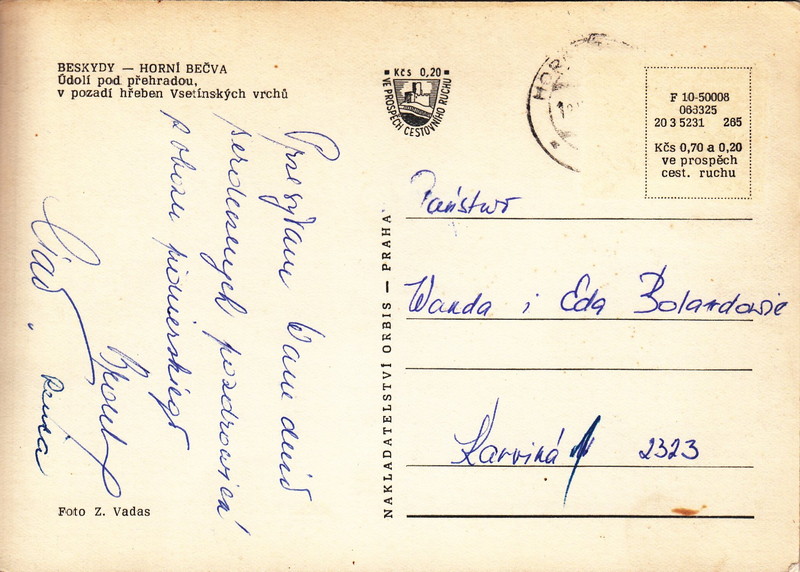 BESKYDY — HORNÍ BEČVA
Údolí pod přehradou,
v pozadí hřeben Vsetínských vrchů
Kčs 0,20
VE PROSPĚCH CESTOVNÍHO RUCHU
HOR
F 10-50008
063325
20 3 5231 265
Kčs 0,70 a 0,20
ve prospěch
cest. ruchu
Przesyłam Wam dużo
serdecznych pozdrowień
z obozu pionierskiego
Państwo
Wanda i Eda
Karviná 2323
NAKLADATELSTVÍ ORBIS — PRAHA
Foto Z. Vadas